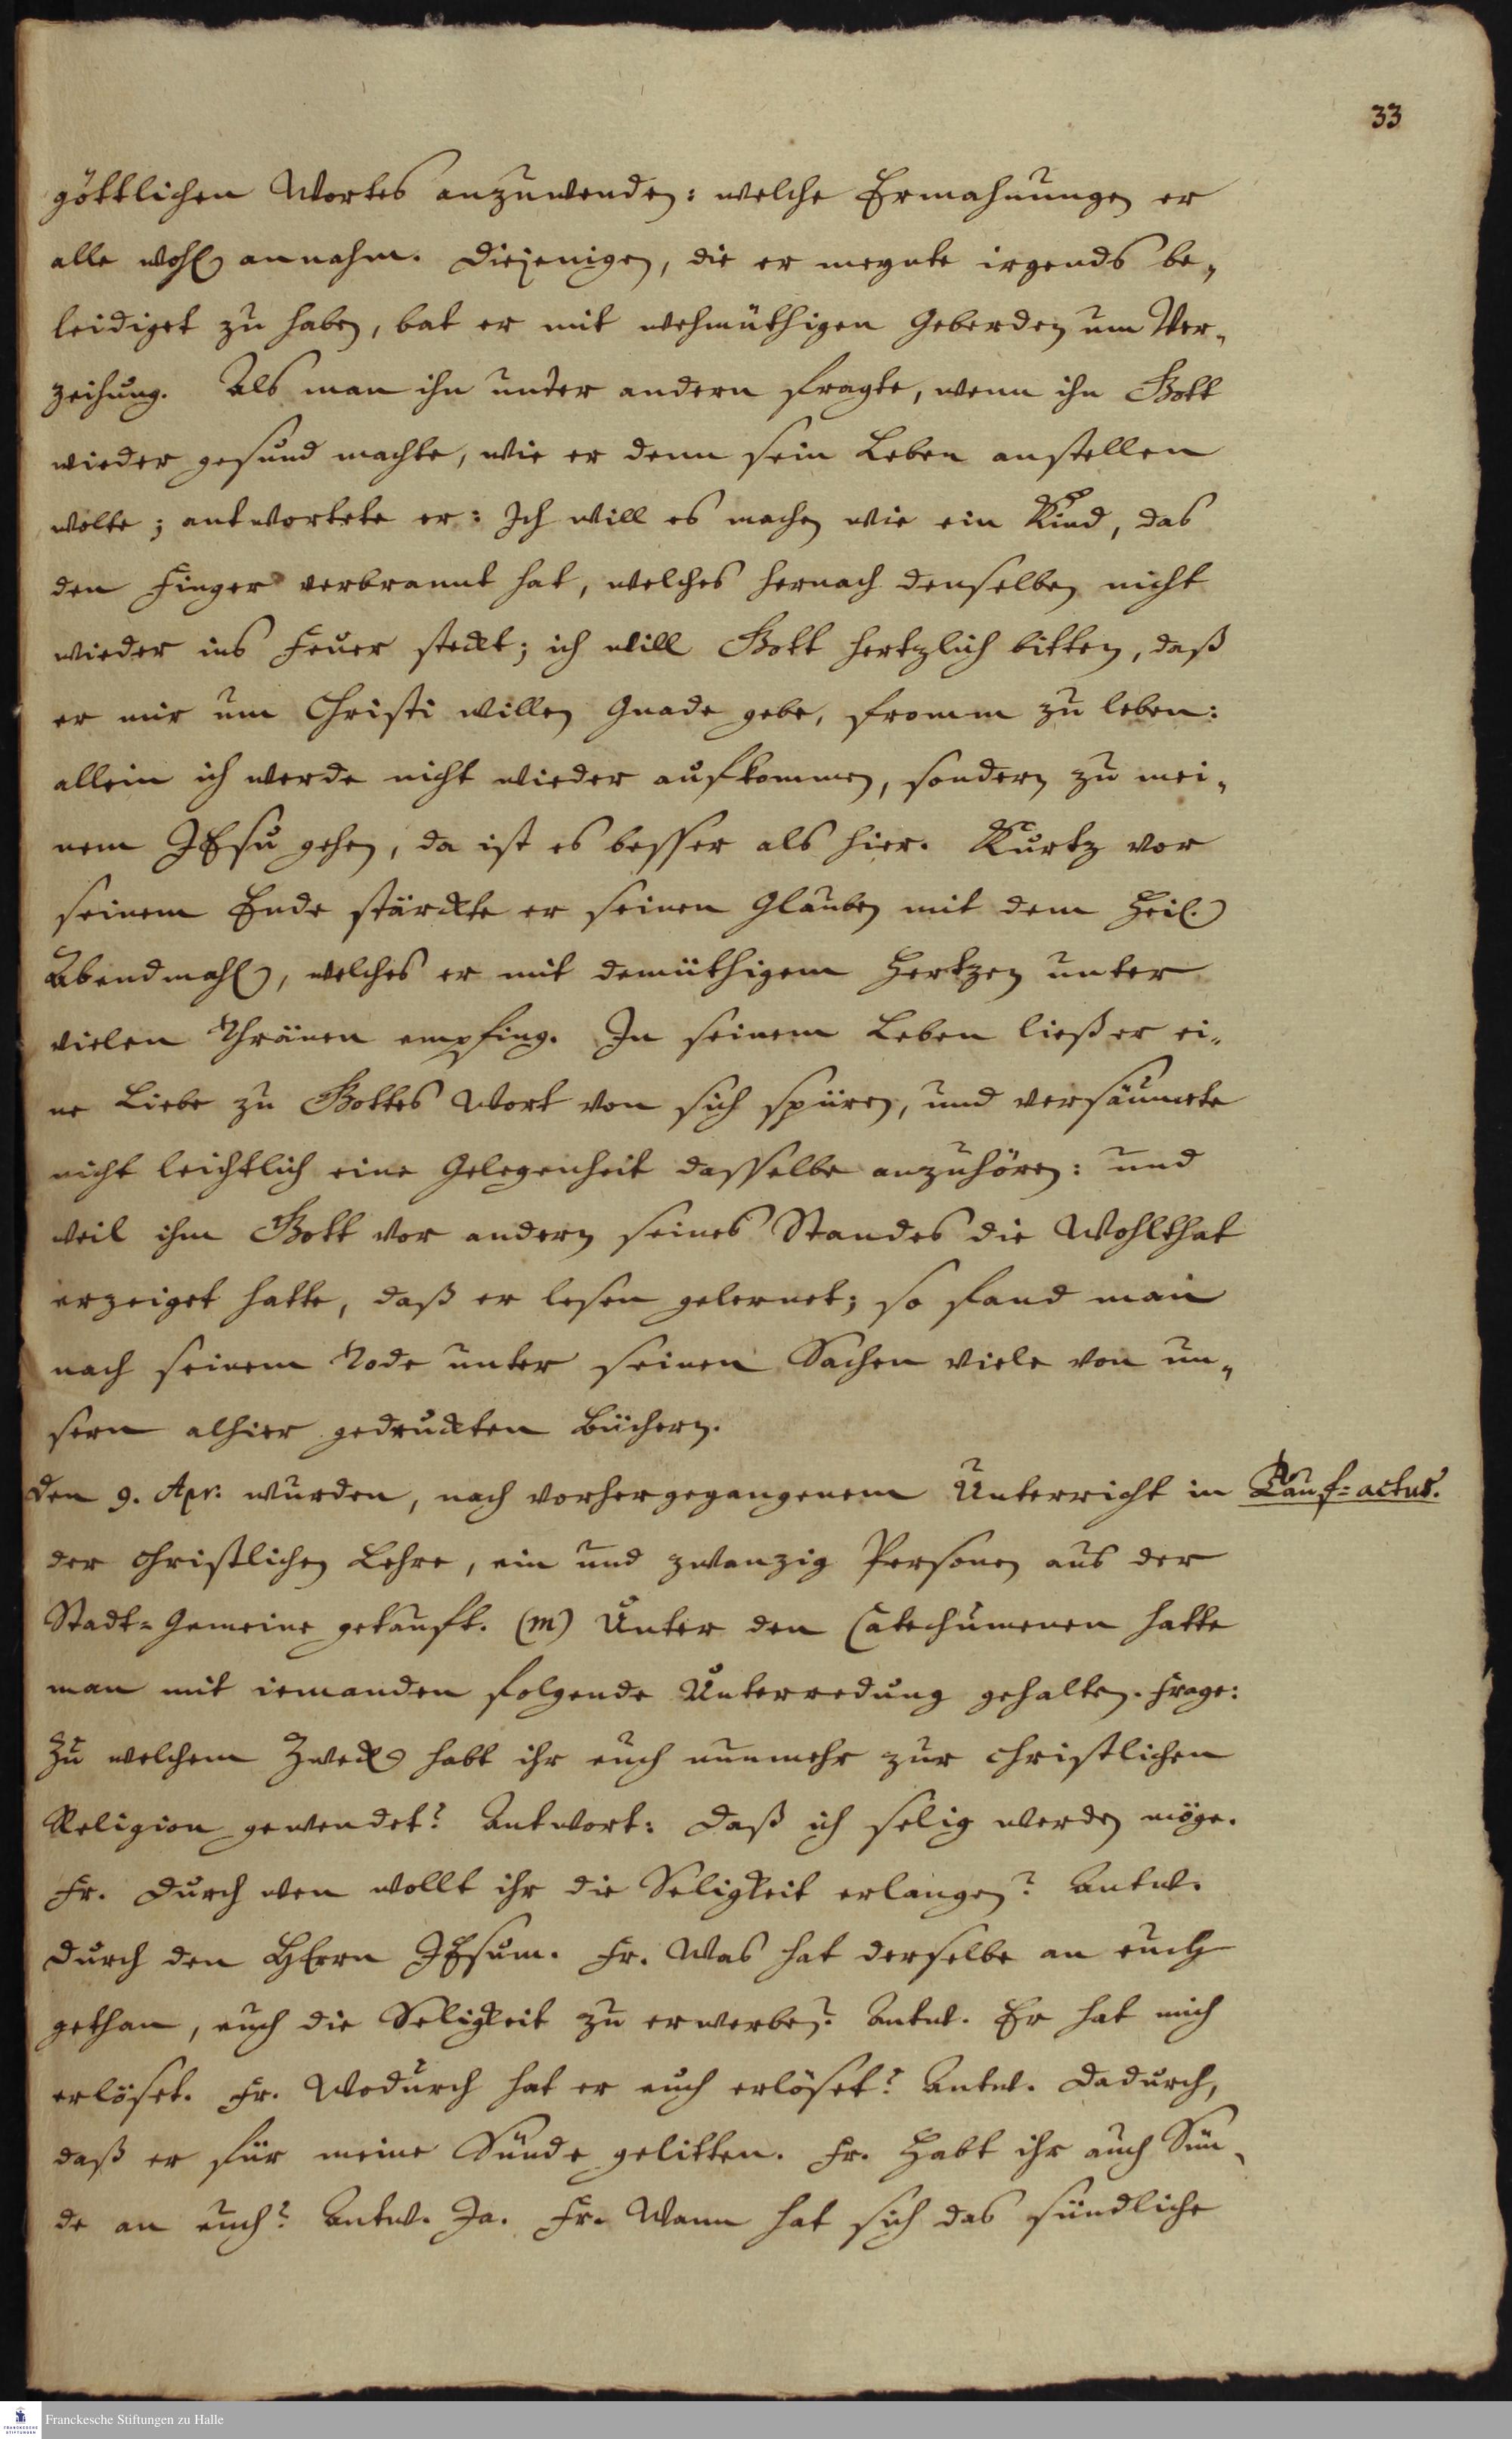 33
göttlichen Wortes anzuwenden: welche Ermahnungen er
alle wohl annahm. Diejenigen, die er meynte irgends be-
leidiget zu haben, bat er mit wehmüthigen Geberden um Ver-
zeihung. Als man ihn unter andern fragte, wenn ihn Gott
wieder gesund machte, wie er denn sein Leben anstellen
wolte; antwortete er: Ich will es machen wie ein Kind, das
den Finger verbrannt hat, welches hernach denselben nicht
wieder ins Feuer steckt; ich will Gott hertzlich bitten, daß
er mir um Christi willen Gnade gebe, fromm zu leben:
allein ich werde nicht wieder aufkommen, sondern zu mei-
nem JEsu gehen, da ist es besser als hier. Kurtz vor
seinem Ende stärckte er seinen Glauben mit dem Heil.
Abendmahl, welches er mit demüthigem Hertzen unter
vielen Thränen empfing. In seinem Leben ließ er ei-
ne Liebe zu Gottes Wort von sich spüren, und versäumete
nicht leichtlich eine Gelegenheit dasselbe anzuhören: und
weil ihm Gott vor andern seines Standes die Wohlthat
erzeiget hatte, daß er lesen gelernet; so fand man
nach seinem Tode unter seinen Sachen viele von un-
sern alhier gedruckten Büchern.
Den 9. Apr. wurden, nach vorhergegangenem Unterricht in Tauf-actus.
der christlichen Lehre, ein und zwanzig Personen aus der
Stadt-Gemeine getauft. (m) Unter den Catechumenen hatte
man mit iemanden folgende Unterredung gehalten. Frage:
Zu welchem Zweck habt ihr euch nunmehr zur christlichen
Religion gewendet? Antwort: Daß ich selig werden möge.
Fr. Durch wen wollt ihr die Seligkeit erlangen? Antw.
Durch den HErrn JEsum. Fr. Was hat derselbe an euch
gethan, euch die Seligkeit zu erwerben? Antw. Er hat mich
erlöset. Fr. Wodurch hat er euch erlöset? Antw. Dadurch,
daß er für meine Sünde gelitten. Fr. Habt ihr auch Sün-
de an euch? Antw. Ja. Fr. Wann hat sich das sündliche
Franckesche Stiftungen zu Halle